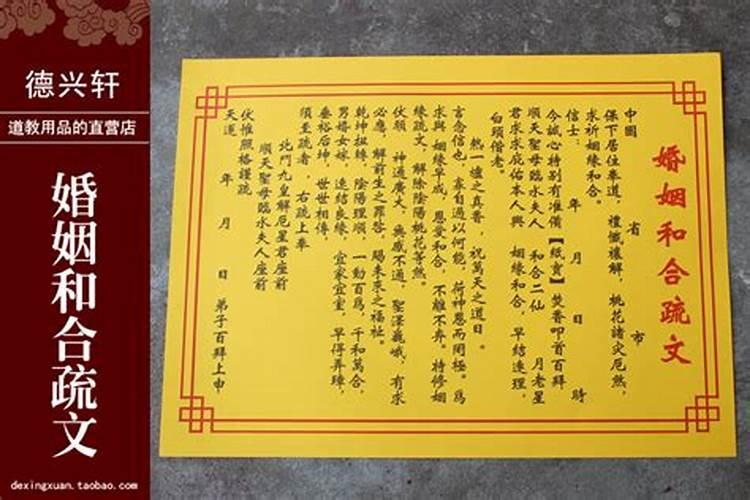 德兴轩
道教用品的直营店
婚姻和合疏文
dexingxuan.taobao.com
婚姻和合疏文
中國 省 市
保下居住奉道，禮懺禳解，桃花諸灾厄煞，
求祈姻緣和合。
信士： 年 月 日 時
今誠心特别有准備【紙寳】焚香叩首百拜
順天聖母臨水夫人 和合二仙 月老星
君求求庇佑本人與 姻緣和合，早結連理，
白頭偕老。
熱一爐之真香，祝萬天之道日。
言念信也，拿自過以何能，荷神恩而罔極。爲
求與 姻緣早成，恩愛和合，不離不弃。特修姻
緣疏文，解除陰陽桃花等煞。
伏願 神通廣大，無感不通，聖澤巍峨，有求
必應，解前生之罪咎，賜未來之福祉。
乾坤扭轉，陰陽理順，一動百爲，千和萬合，
男婚女嫁，速結良緣，宜家宜室，早得弄璋，
垂裕后坤，世世相傳，
須至疏者，右疏上奉
北斗九皇解厄星君座前
順天聖母臨水夫人座前
伏惟照格謹疏
天運 年 月 日 弟子百拜上申